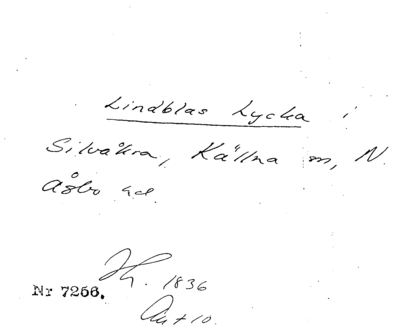 Lindblas Lycka i
Silvåkra, Källna sn, N.
Åsbo hd.
Hg. 1836
Nr 7256.